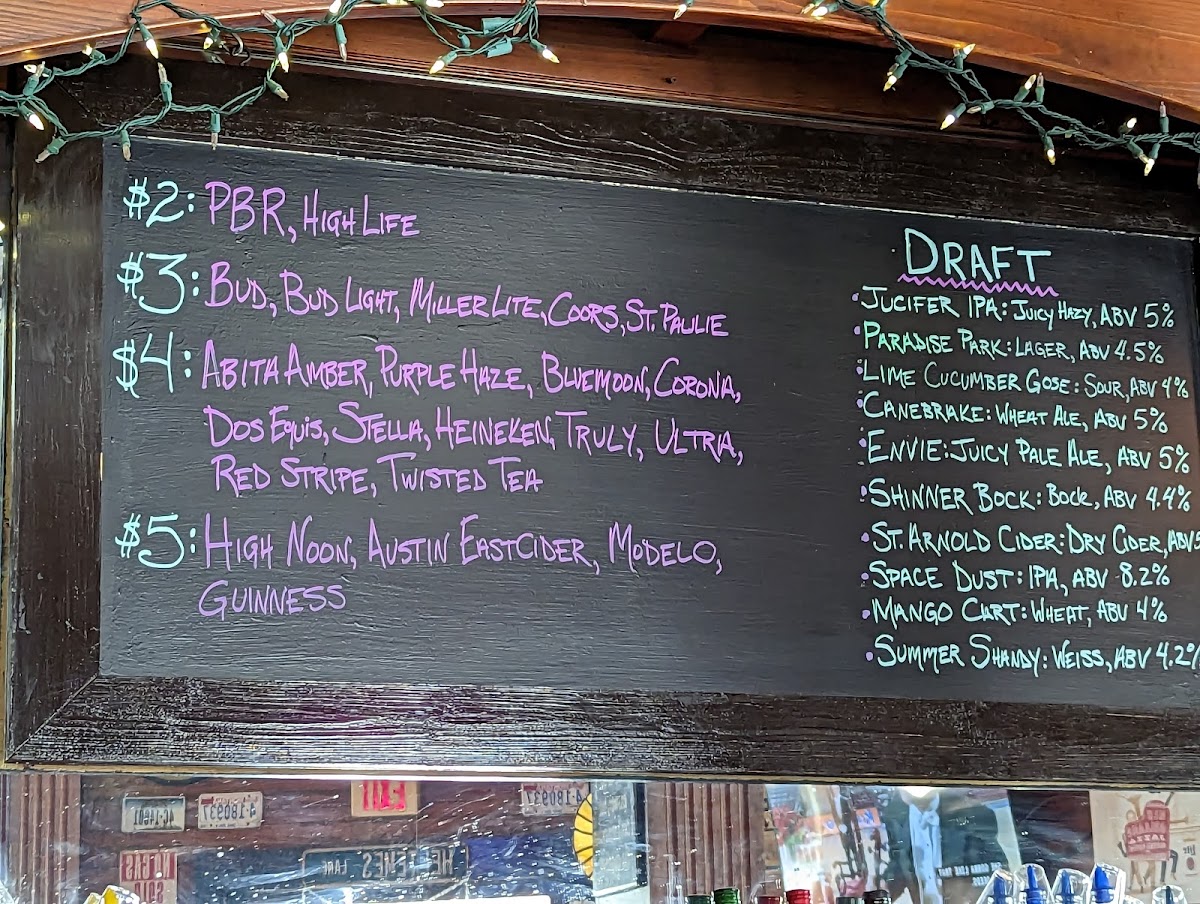 $2: PBR, HIGH LIFE
$3: BUD, BUD LIGHT, MILLER LITE, COORS, ST. PAULIE
$4: ABITA AMBER, PURPLE HAZE, BLUEMOON, CORONA,
DOS EQUIS, STELLA, HEINEKEN, TRULY, ULTRA,
RED STRIPE, TWISTED TEA
$5: HIGH NOON, AUSTIN EASTCIDER, MODELO,
GUINNESS
DRAFT
•JUCIFER IPA: JUICY HAZY, ABV 5%
•PARADISE PARK: LAGER, ABV 4.5%
•LIME CUCUMBER GOSE: SOUR, ABV 4%
•CANEBRAKE: WHEAT ALE, ABV 5%
•ENVIE: JUICY PALE ALE, ABV 5%
•SHINNER BOCK: BOCK, ABV 4.4%
•ST. ARNOLD CIDER: DRY CIDER, ABV 5
•SPACE DUST: IPA, ABV 8.2%
•MANGO CART: WHEAT, ABV 4%
•SUMMER SHANDY: WEISS, ABV 4.2%
4-180937
EXIT
4-180937